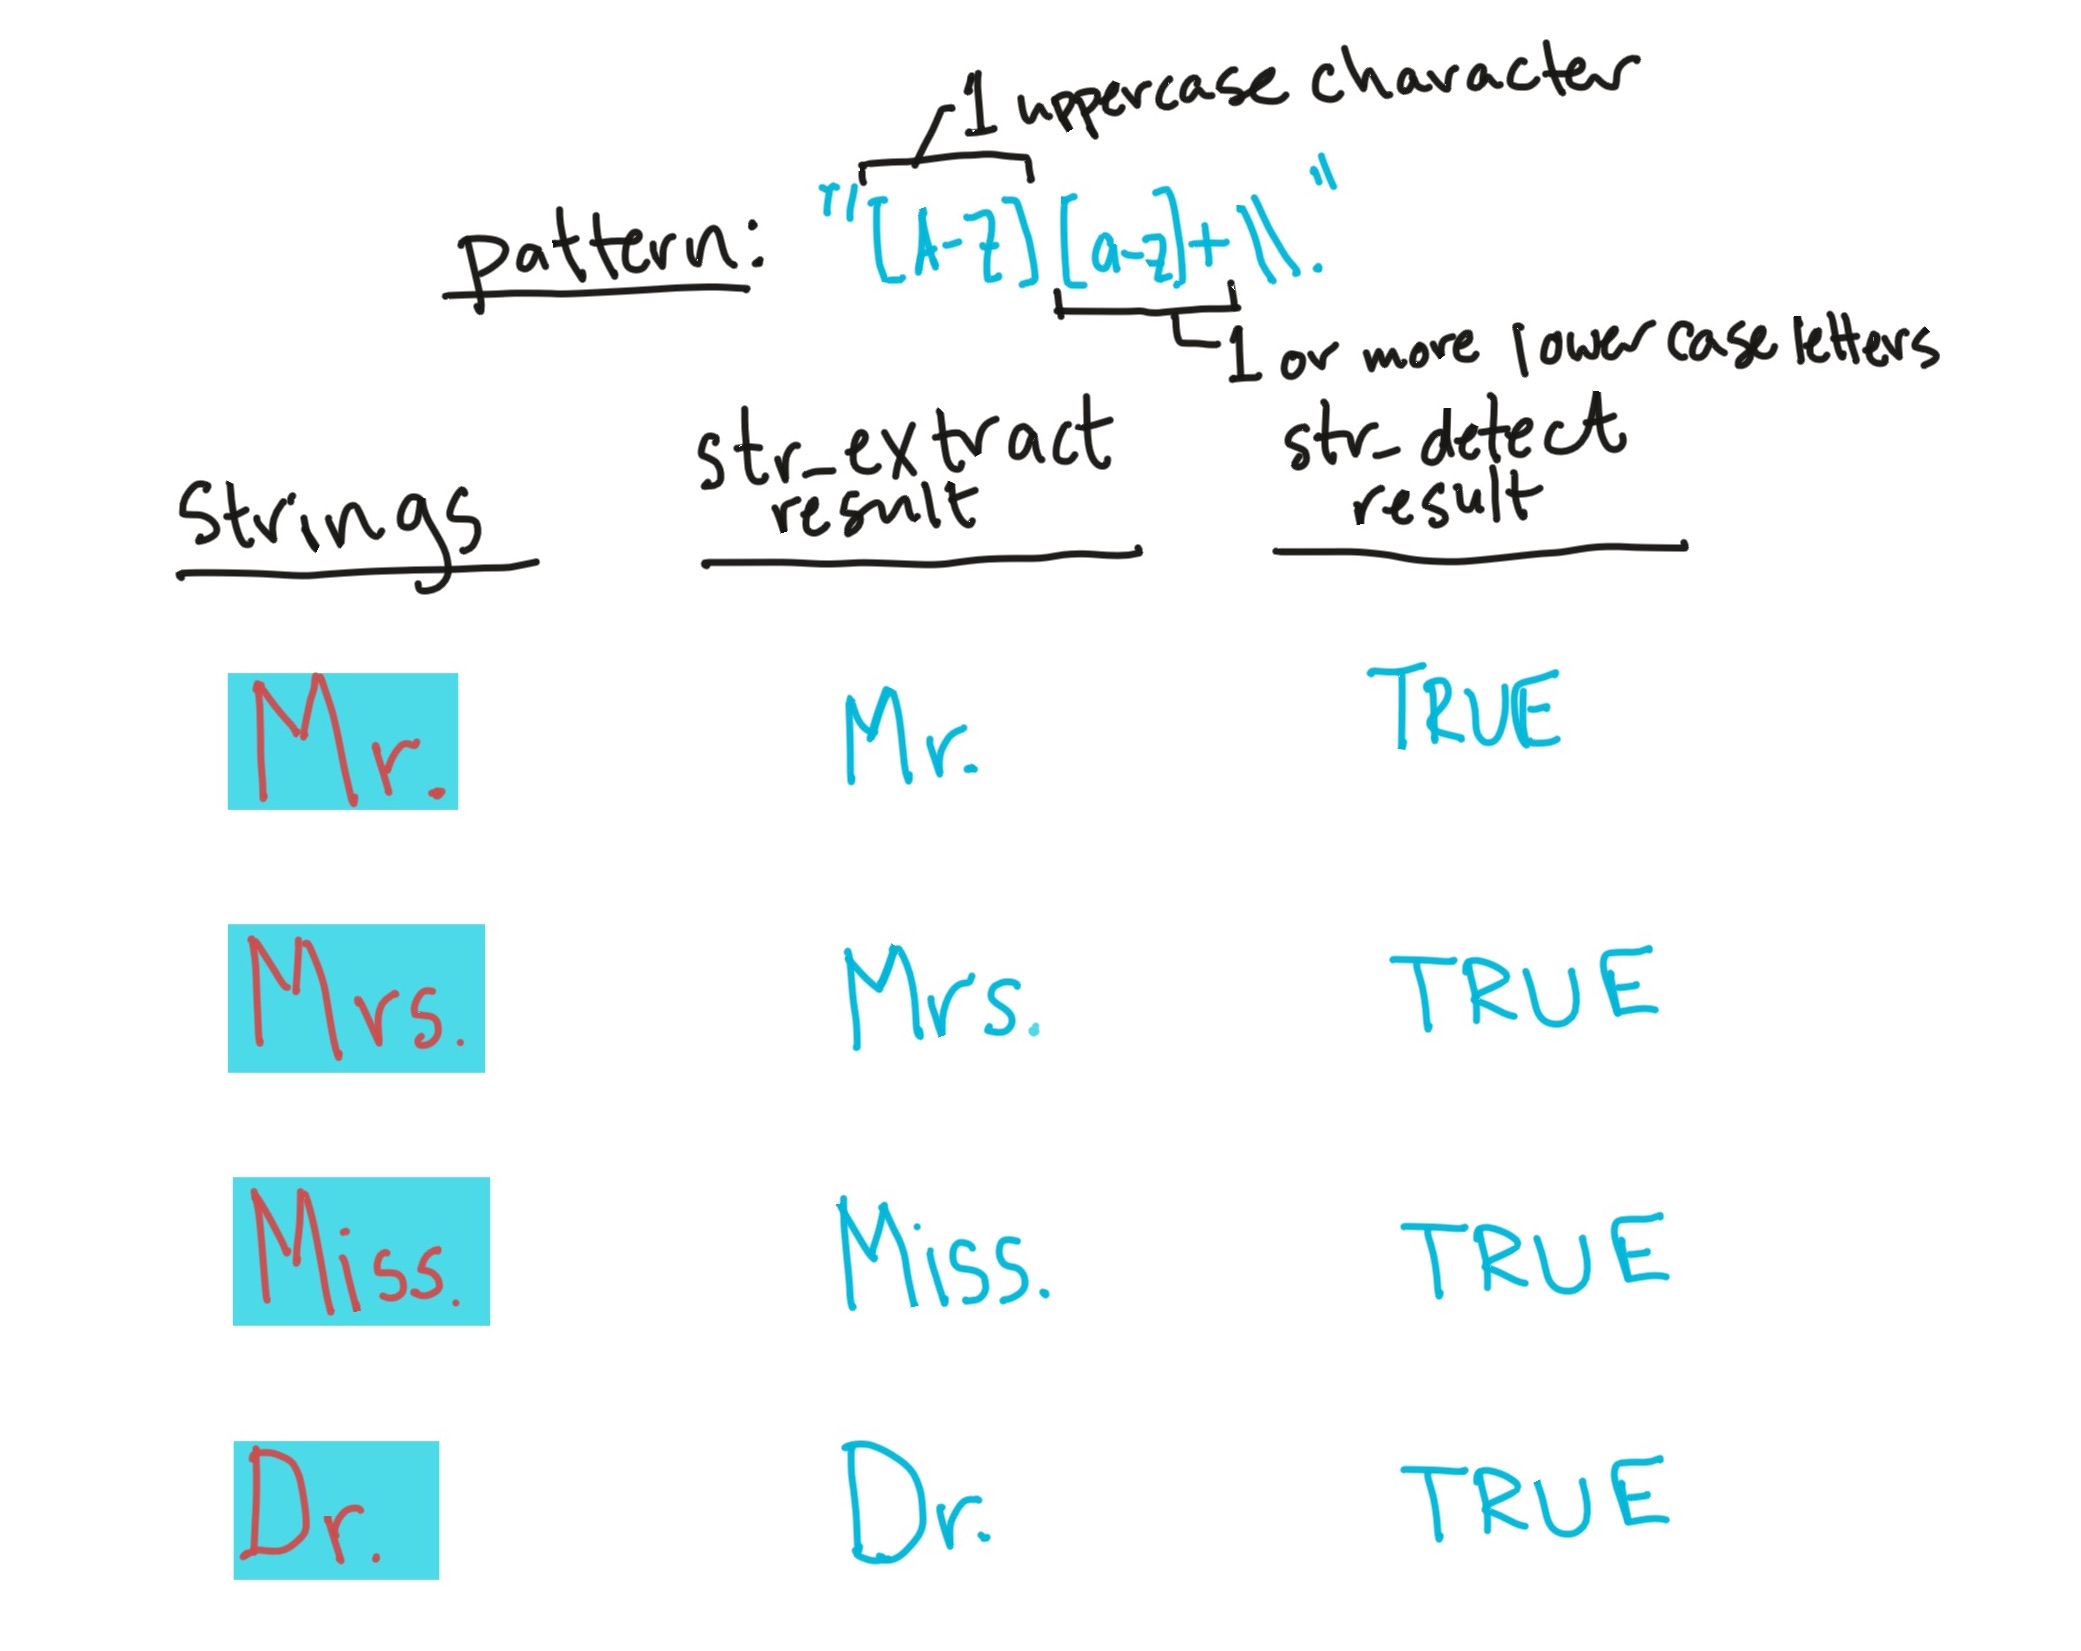 1 uppercase character
pattern: "[A-Z][a-z]+\\."
1 or more lower case letters
strings str_extract result str_detect result
Mr. Mr. TRUE
Mrs. Mrs. TRUE
Miss. Miss. TRUE
Dr. Dr. TRUE